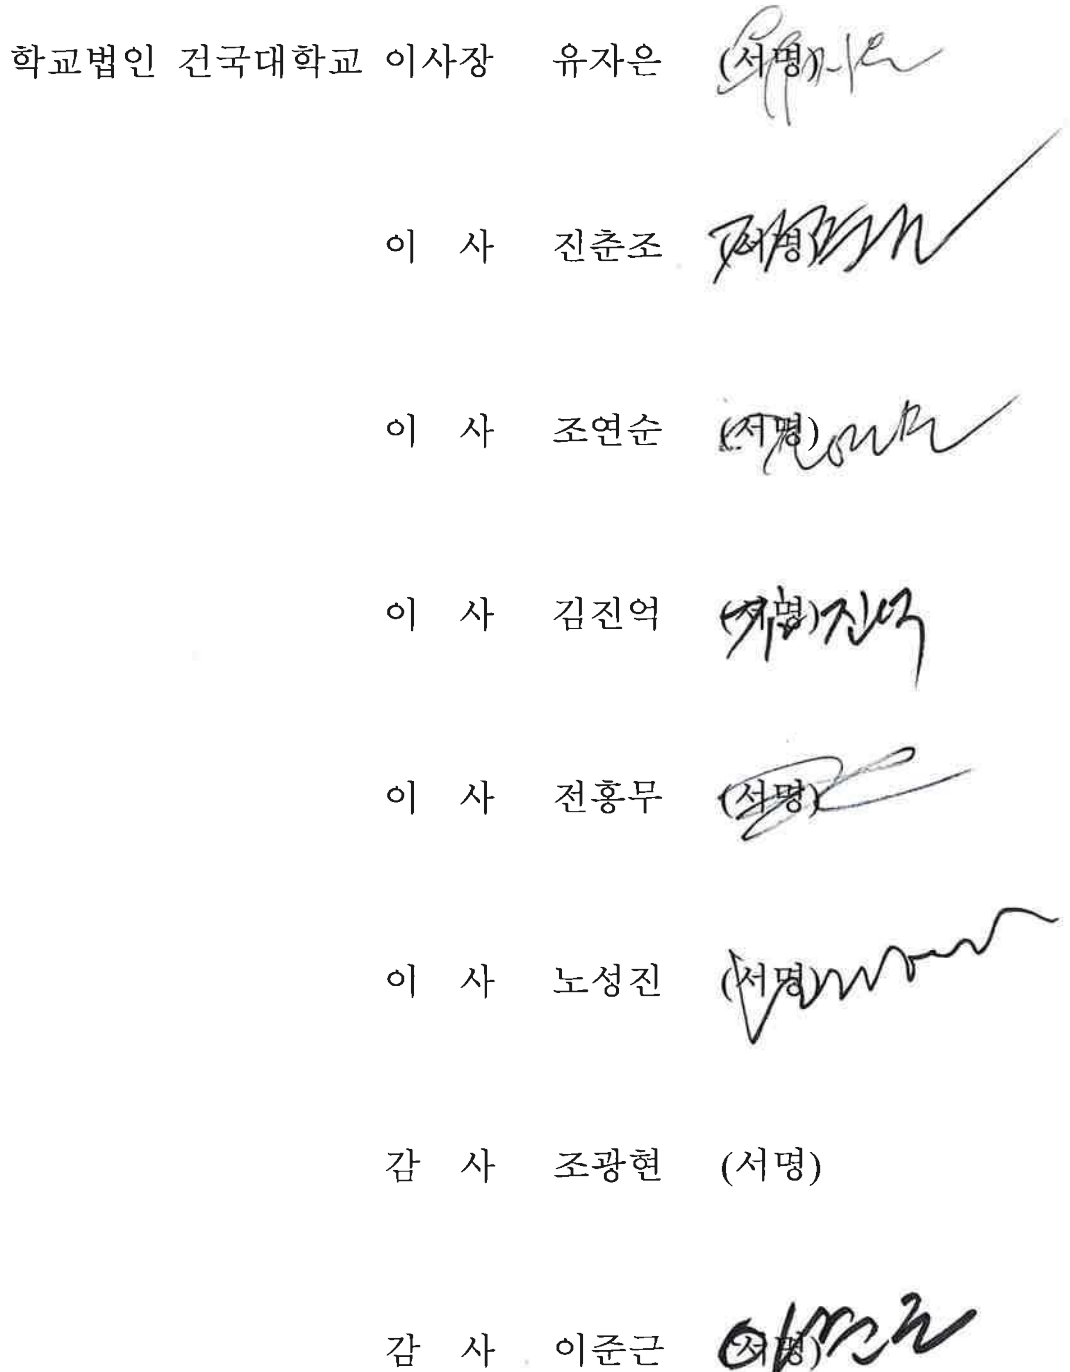 학교법인 건국대학교 이사장 유자은 (서명)
이 사 진춘조 (서명)
이 사 조연순 (서명)
이 사 김진억 (서명) 김진억
이 사 전홍무 (서명)
이 사 노성진 (서명)
감 사 조광현 (서명)
감 사 이준근 (서명) 이준근